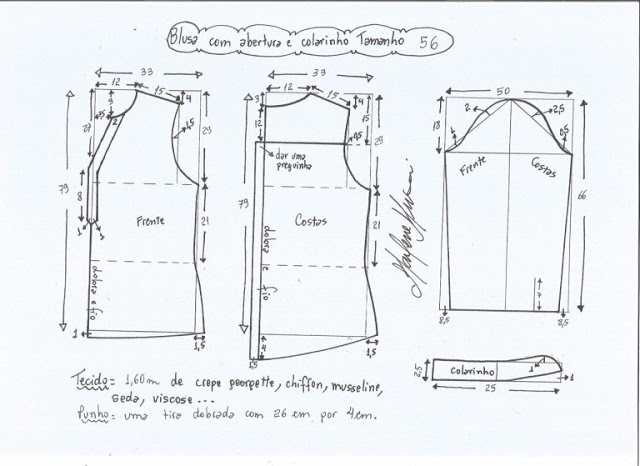 Blusa com abertura e colarinho Tamanho 56
33
12
15
4
3
29
27
3,5
2
1,5
79
8
1
1
Frente
21
dobra e fio
1
1,5
33
12
15
4
3
12
15
0,5
29
dar uma preguinha
79
Costas
21
dobra e fio
4
1,5
1,5
50
18
2
2,5
1
0,5
Frente
Costas
66
7
8,5
8,5
2,5
colarinho
1
1
25
Tecido= 1,60m de crepe georgette, chiffon, musseline,
seda, viscose...
Punho= uma tira dobrada com 26 cm por 4cm.